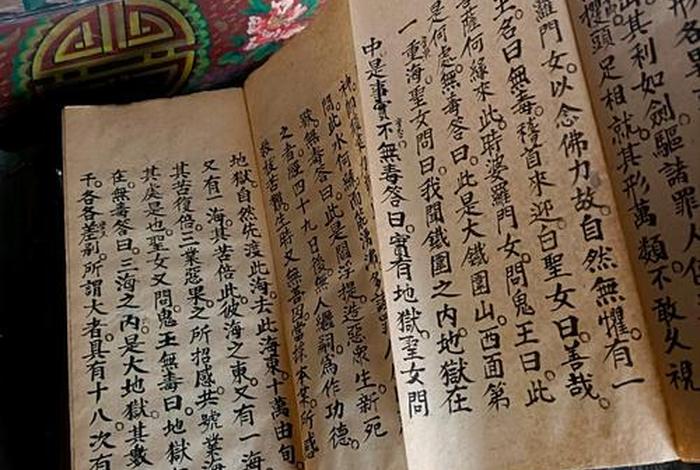 出其利如劍驅諸罪人
攫頭足相就其形萬類不敢久視
羅門女。以念佛力故自然無懼。有一
王名曰無毒。稽首來迎白聖女曰。善哉。
菩薩何緣來此。時婆羅門女。問鬼王曰。此
是何處。無毒答曰。此是大鐵圍山。西面第
一重海。聖女問曰。我聞鐵圍之內。地獄在
中。是事實不。無毒答曰。實有地獄。聖女問
問。此水何緣而能湧沸
無毒答曰。此是閻浮提造惡眾生。新死
之者。經四十九日後。無人繼嗣。為作功德。
救拔苦難。生時又無善因。當據本業所感
地獄。自然先渡此海。去此海東十萬由旬。
又有一海。其苦倍此。彼海之東。又有一海。
其苦復倍。三業惡果之所招感。共號業海
其處是也。聖女又問鬼王無毒曰。地獄
在。無毒答曰。三海之內。是大地獄。其數
千。各各差別。所謂大者。具有十八。次有